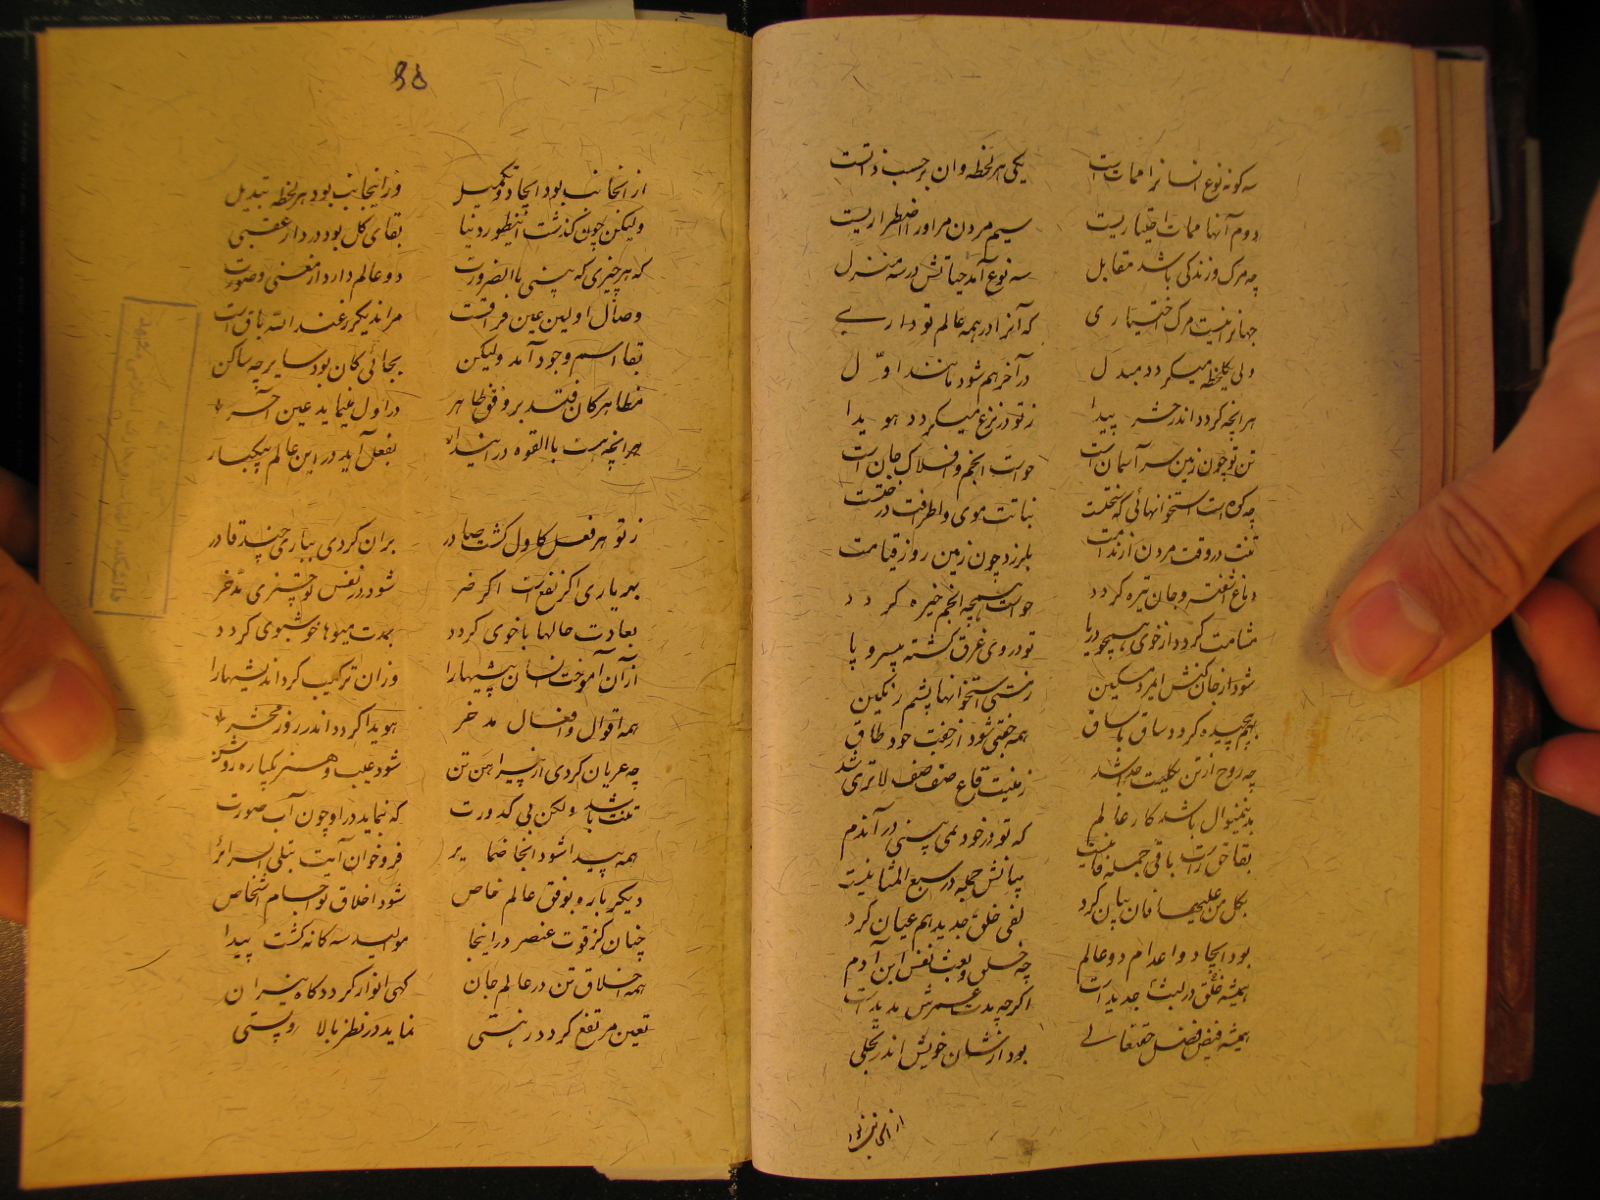 سه کونه نوع انسانرا ممات است یکی هر لحظه وان برحسب ذاتست
دوم آنها ممات اختیاریست سیم مردن مر اورا اضطراریست
چه مرک و زندکی باشد مقابل سه نوع آمد حیاتش در سه منزل
جهانرا نیست مرک اختیاری که آنرا در همه عالم تو داری
ولی یکلحظه میکردد مبدل در آخر هم شود مانند اول
هر آنچه کردد اندر حشر پیدا ز تو در نزع میکردد هویدا
تن تو چون زمین سر آسمان است حواست انجم و افلاک جان است
چه کوه است استخوانهائی که سختست نباتت موی و اطرافت درختست
تنت در وقت مردن از ندامت بلرزد چون زمین روز قیامت
دماغ آشفته و جان تیره کردد حواست همچه انجم خیره کردد
مشامت کردد از خوی همچو دریا تو در وی غرق کشته بی سر و پا
شود از جان کنش ایمرد مسکین ز سستی استخوانها پشم رنکین
بهم پیچیده کردد ساق با ساق همه جفتی شود از جفت خود طاق
چه روح از تن بکلیت جدا شد زمینت قاع صفصف لاتری شد
بدینمنوال باشد کار عالم که تو در خود می بینی در آندم
بقا حق راست باقی جمله فانیست بیانش جمله در سبع المثانیست
بکل من علیها فان بیان کرد لفی خلق جدید هم عیان کرد
بود ایجاد و اعدام دو عالم چه خلق و بعث نفس ابن آدم
همیشه خلق در لبث جدید است اکرچه مدت عمرش مدید است
همیشه فیض فضل حقتعالی بود از شان خویش اندر تجلی
از انجانب بود
۹۵
از انجانب بود ایجاد و تکمیل وز اینجانب بود هر لحظه تبدیل
ولیکن چون کذشت اینطور دنیا بقای کل بود در دار عقبی
که هر چیزی که بینی باالضرورت دو عالم دارد از معنی و صورت
وصال اولین عین فراقست مر اندیکر ز عند الله باق است
بقا اسم وجود آمد ولیکن بجائی کان بود سایر چه ساکن
مظاهر کان فتد بر وفق ظاهر در اول مینماید عین آخر
هر انچه هست باالقوه در ایندار بفعل آید در این عالم بیکبار
ز تو هر فعل کاول کشت صادر بران کردی بباری چند قادر
بهر باری اکر نفع است اکر ضر شود در نفس تو چیزی مدخر
بعادت حالها با خوی کردد بمدت میوها خوشبوی کردد
از آن آموخت انسان پیشهارا وزان ترکیب کرد اندیشهارا
همه اقوال و افعال مدخر هویدا کردد اندر روز محشر
چه عریان کردی از پیراهن تن شود عیب و هنر یکباره روشن
تنت باشد ولکن بی کدورت که نماید در او چون آب صورت
همه پیدا شود انجا ضمایر فروخوان آیت تبلی السرائر
دیکر باره بوفق عالم خاص شود اخلاق تو اجسام اشخاص
چنان کز قوت عنصر در اینجا موالید سه کانه کشت پیدا
همه اخلاق تن در عالم جان کهی انوار کردد کاه نیران
تعین مرتفع کردد ز هستی نماید در نظر بالا و پستی